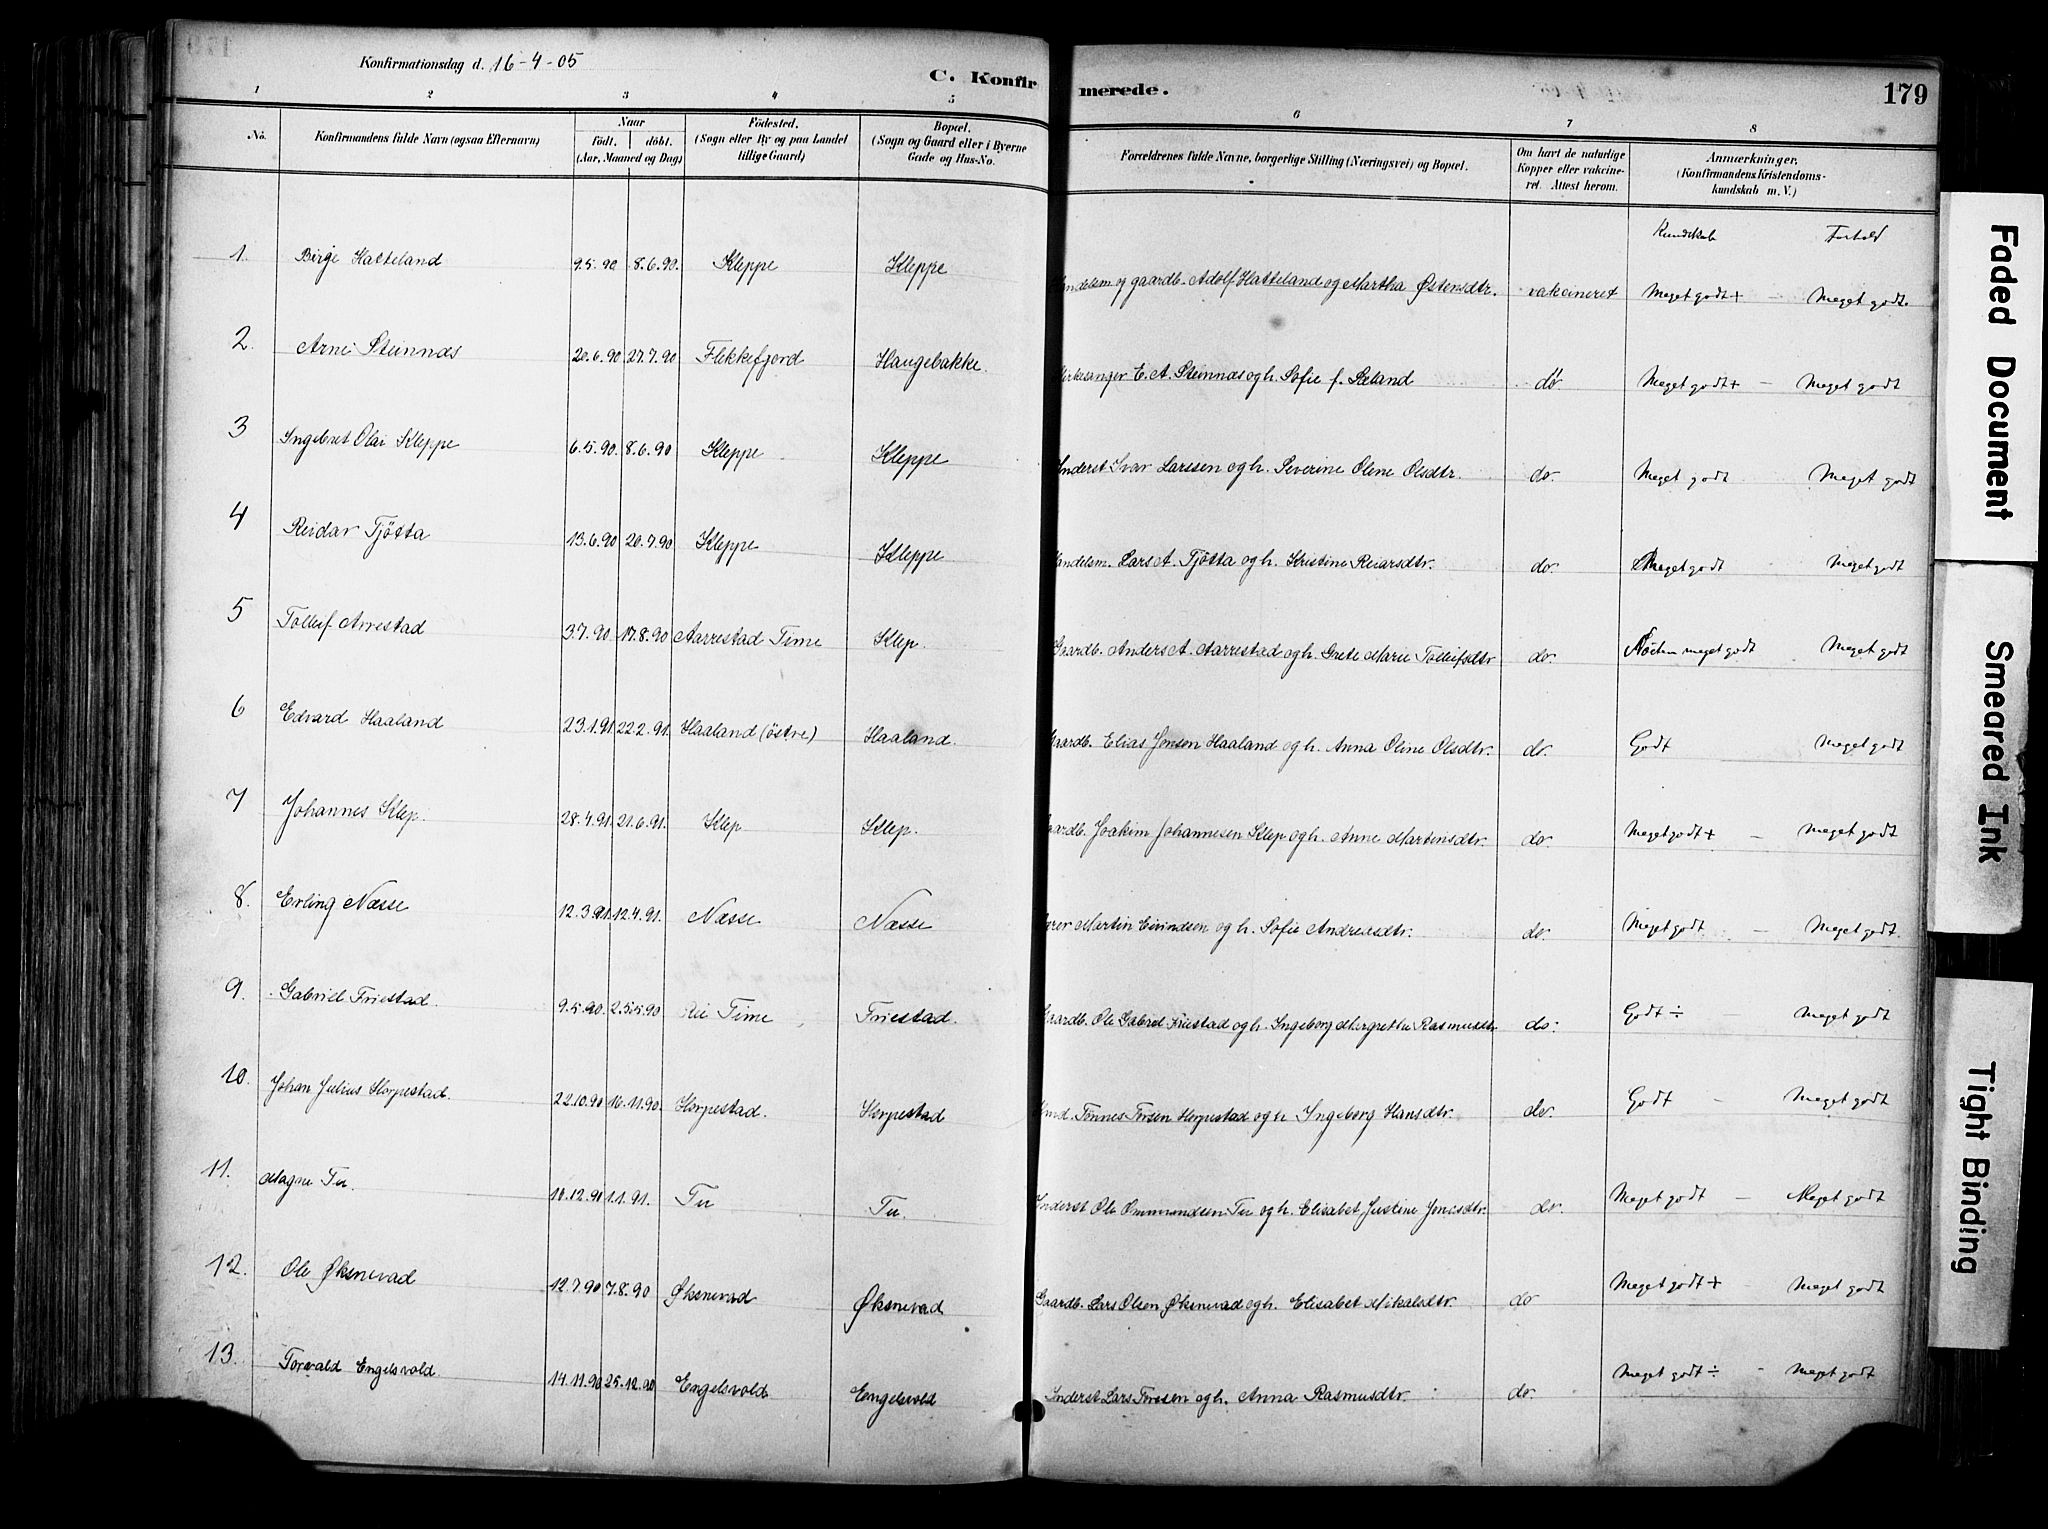 Konfirmationsdag d. 16-4-05
C. Konfirmerede.
179
1 2 3 4 5 6 7 8
No. Konfirmandens fulde Navn (ogsaa Efternavn) Naar födt. döbt. (Aar, Maaned og Dag) Födested. (Sogn eller By og paa Landet tillige Gaard) Bopæl. (Sogn og Gaard eller i Byerne Gade og Hus-No. Forældrenes fulde Navne, borgerlige Stilling (Næringsvei) og Bopæl. Om havt de naturlige Kopper eller vakcineret. Attest herom. Anmærkninger, (Konfirmandens Kristendomskundskab m. V.)
Kundskab Forhold
1. Birge Hatteland 9.5.90 8.6.90. Kleppe Kleppe Handelsm. og gaardb. Adolf Hatteland og Martha Østensdtr. vakcineret Meget godt + - Meget godt.
2. Arne Steinnæs 20.6.90 27.7.90 Flekkefjord Haugebakke. Kirkesanger E. A. Steinnæs og h. Sofie f. do Meget godt + - Meget godt
3 Ingebret Olai Kleppe 6.5.90 8.6.90 Kleppe Kleppe Inderst Ivar Larssen og h. Severine Oline Olsdtr. do. Meget godt Meget godt
4 Reidar Tjøtta 13.6.90 20.7.90 Kleppe Kleppe Handelsm. Lars A. Tjøtta og h. Kristine Reiarsdtr. do. Meget godt Meget godt
5 Tolleif Arrestad 3.7.90 17.8.90 Aarrestad Time Klep. Gaardb. Anders A. Aarrestad og h. Grete Marie Tolleifsdtr do. meget godt Meget godt
6 Edvard Haaland 23.1.91. 22.2.91. Haaland (östre) Haaland. Gaardb. Elias Jonsen Haaland og h. Anna Oline Olsdtr. do. Godt Meget godt
7 Johannes Klep. 28.4.91. 21.6.91. Klep Klep. Gaardb. Joakim Johannesen Klep og h. Anne Martinsdtr. do. Meget godt + - Meget godt
8. Erling Næsse 12.3.91. 12.4.91. Næsse Næsse Martin Eivindsen og h. Sofie Andreasdtr. do. Meget godt - Meget godt.
9. Gabriel Friestad. 9.5.90. 25.5.90 Time Friestad. Gaardb. Ole Gabriel Friestad og h. Ingeborg Margrethe Rasmusdtr do. Godt ÷ - Meget godt
10. Johan Julius Horpestad. 22.10.90 16.11.90. Horpestad. Horpestad Tønnes Torsen Horpestad og h Ingeborg Hansdtr. do. Godt - Meget godt
11. Magne Tu. 10.12.90 1.1.91. Tu Tu. Inderst Ole Ommundsen Tu og h. Elisabet Justine Jonasdtr. do. Meget godt - Meget godt
12. Ole Øksnevad 12.7.90 7.8.90 Øksnevad Øksnevad Gaardb. Lars Olsen Øksnevad og h. Elisabet Mikalsdtr. do Meget godt + - Meget godt
13. Torvald Engelsvold 14.11.90 25.12.90 Engelsvold Engelsvold Inderst Lars Toresen og h. Anna Rasmusdtr. do. Meget godt ÷ - Meget godt
Faded Document
Smeared Ink
Tight Binding